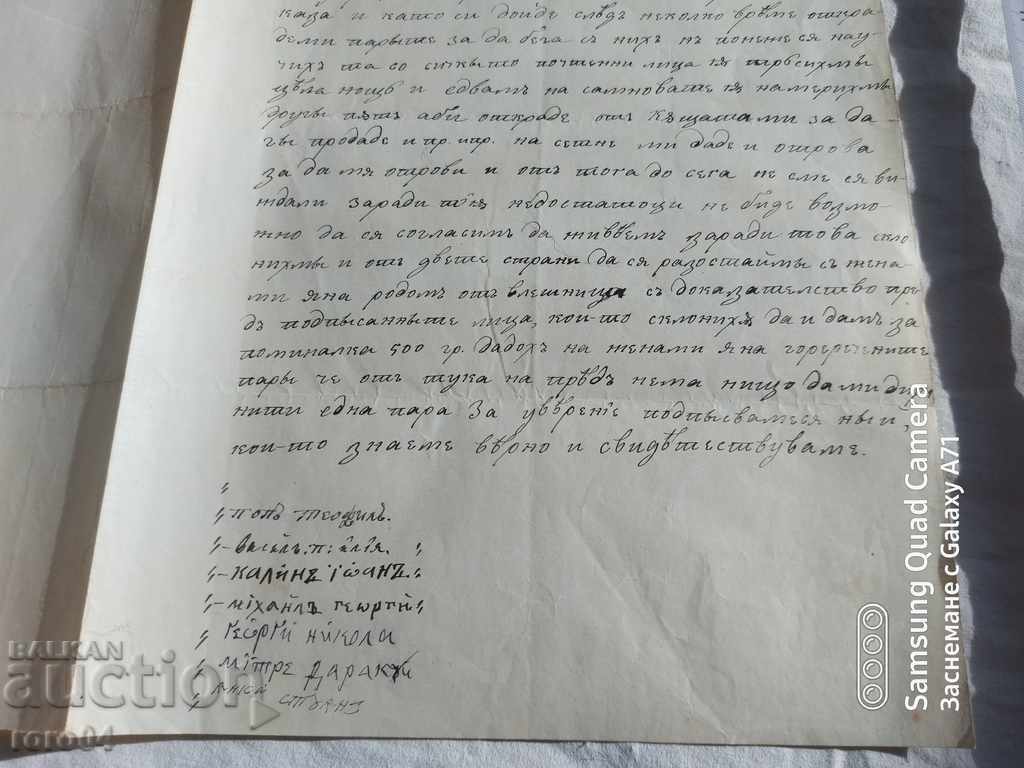 каза и като си дойде слѣдъ неколко врѣме откра-
деми парыте за да бѣга съ нихъ нъ понеже ся нау-
чихъ та со сичкыто почтенни лица ѭ търсихмы
цѣла нощь и едвамъ на самновате ѭ намерихмы
другы пѫть аби открадe отъ кѫщатами за да
гы продаде и пр. ипр. на сетне ми даде и отрова
за да мя отрови и отъ тога до сега не сме ся ви-
ждали заради тїѭ недостатоци не биде возмо-
жно да ся согласимъ да живѣемъ заради това скло
нихмы и отъ двете страни да ся разостаймы съ жена
ми Яна родомъ отъ влешница съ доказателство пре-
дъ подписанныте лица, кои-то склонихѫ да и дамъ за
поминалка 500 гр. дадохъ на женами Яна горереченните
пары че отъ тука на прѣдъ нема нищо да ми ди
нити една пара За увѣренїе подписвамеся ный,
кои-то знаеме вѣрно и свидѣтествуваме.
"
"попъ Теофилъ.
"-василъ. п: илїя. "
"-Калинъ їѡанъ."
"-Міхаилъ георгій"
" Георгїй Никола
" Мїтре Дарак
" Стоянъ
BALKAN
auction
roro04
Заснемане с Galaxy A71
Samsung Quad Camera